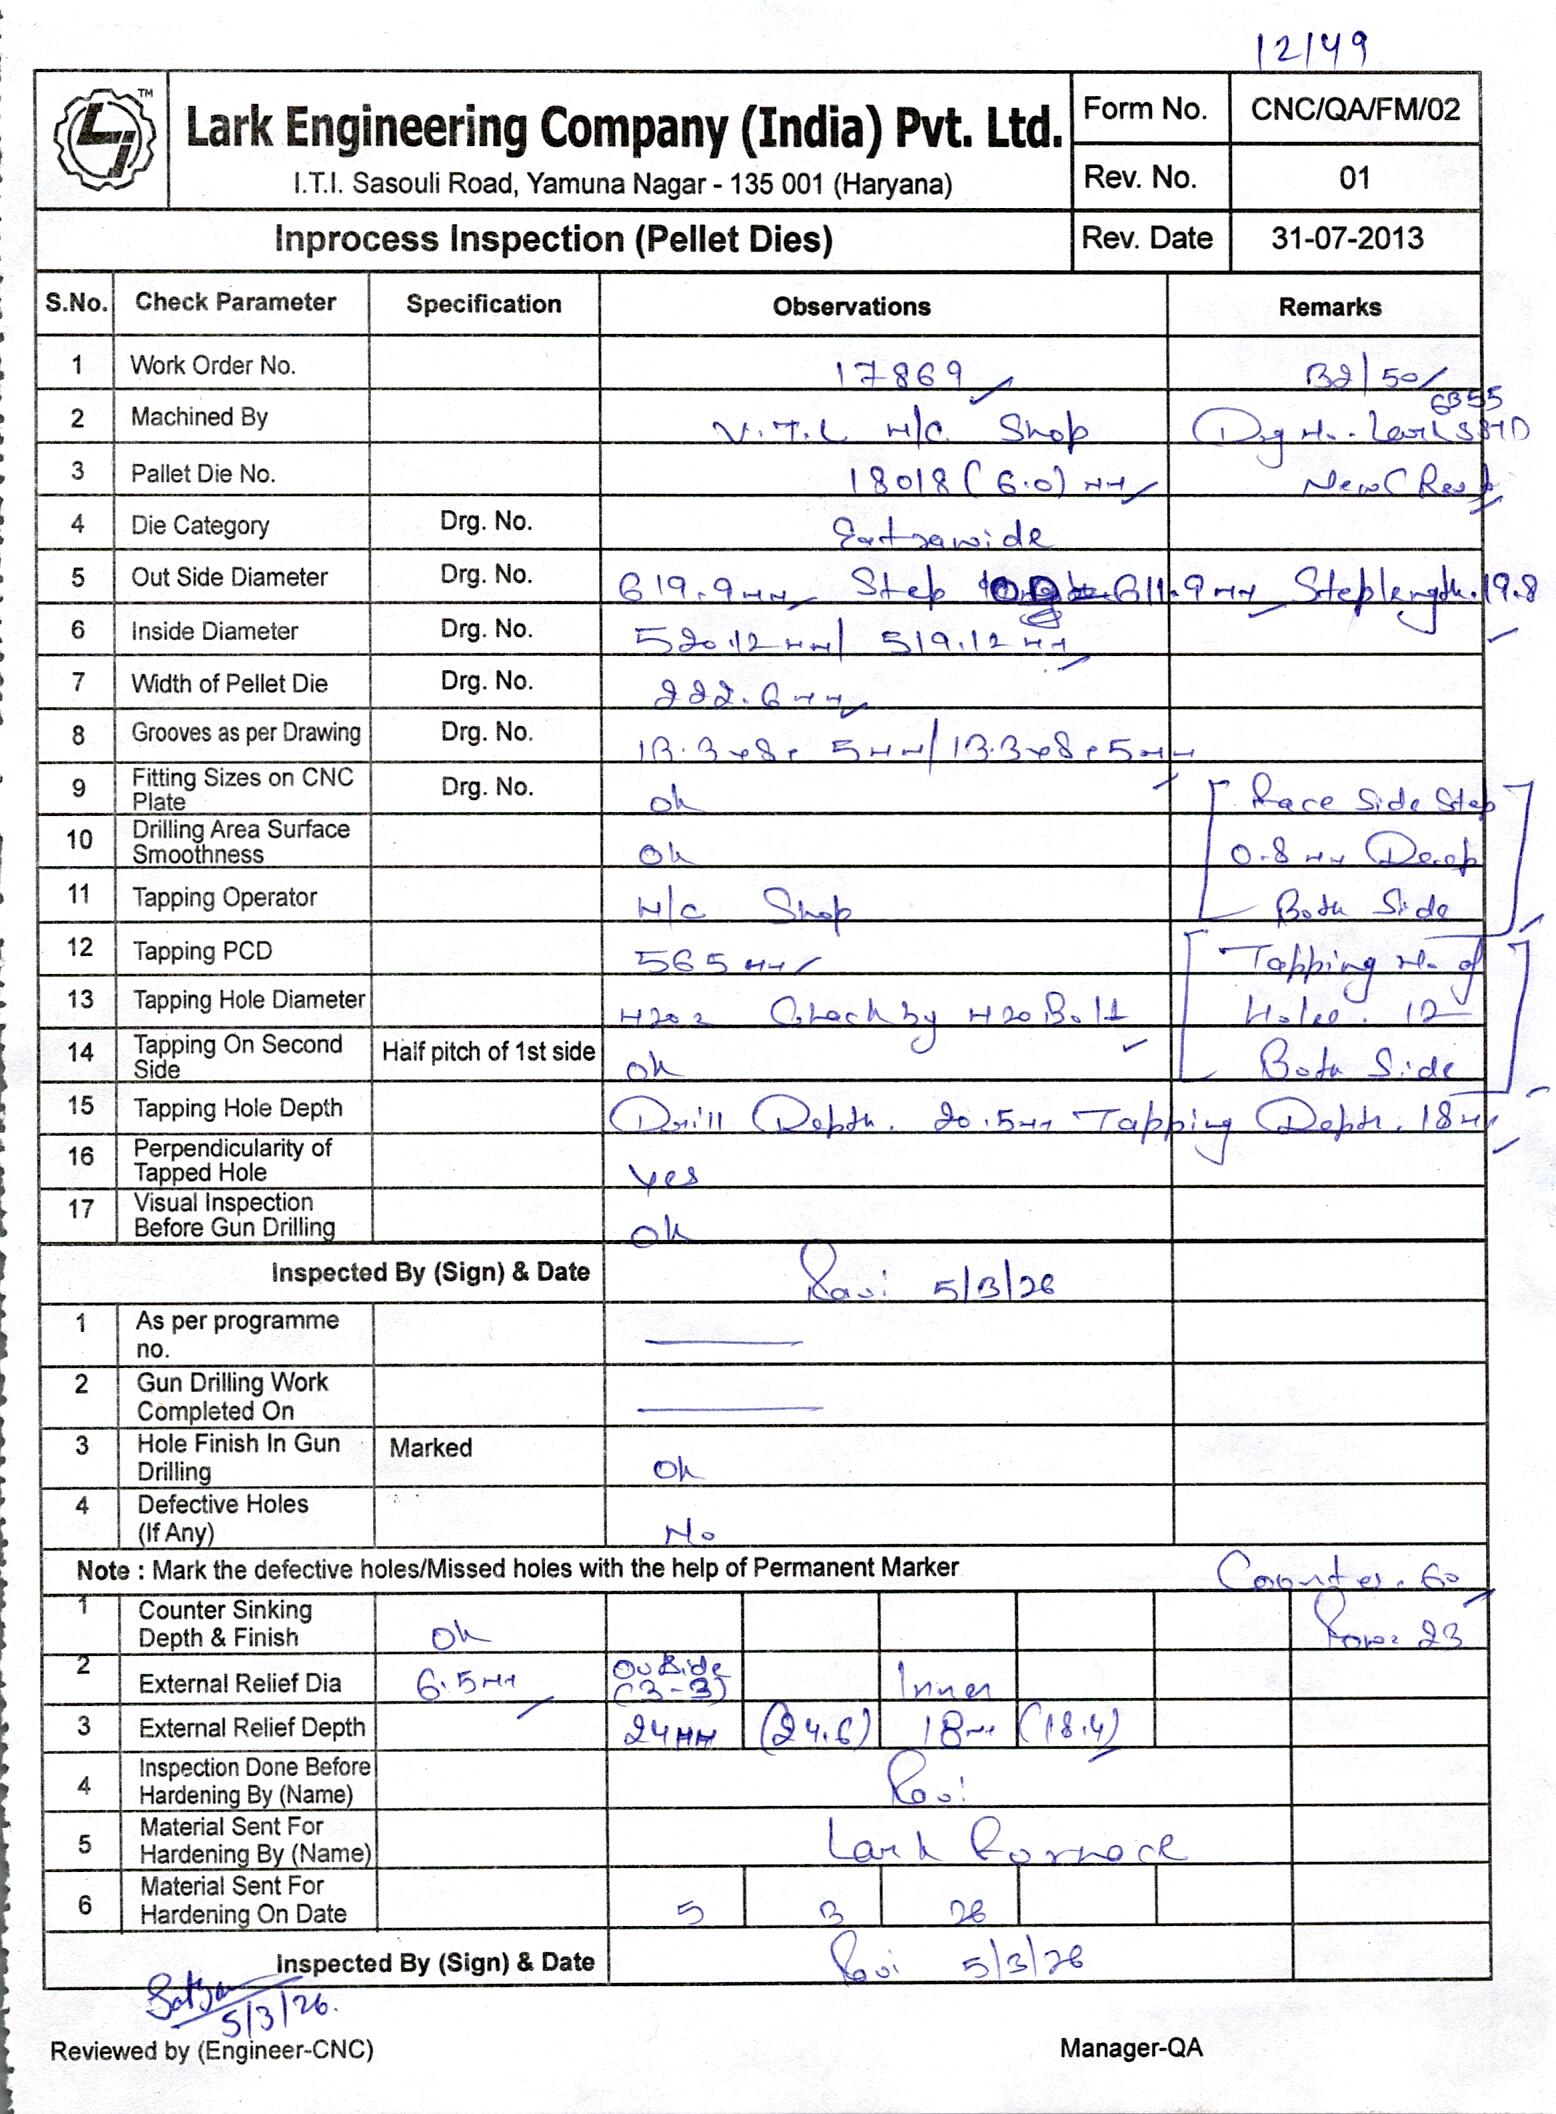 12/49
TM
Lark Engineering Company (India) Pvt. Ltd.
I.T.I. Sasouli Road, Yamuna Nagar - 135 001 (Haryana)
Form No. CNC/QA/FM/02
Rev. No. 01
Inprocess Inspection (Pellet Dies)
Rev. Date 31-07-2013
S.No. Check Parameter Specification Observations Remarks
1 Work Order No. 17869 B2/50
2 Machined By V.T.L M/C Shop Drg No. Lark
3 Pallet Die No. 18018 (6.0) mm New
4 Die Category Drg. No. Extrawide
5 Out Side Diameter Drg. No. 619.9mm Step OD 611.9mm Step length. 19.8
6 Inside Diameter Drg. No. 520.12mm/ 519.12mm
7 Width of Pellet Die Drg. No. 222.6mm
8 Grooves as per Drawing Drg. No. 13.3x8.5mm/13.3x8.5mm
9 Fitting Sizes on CNC Plate Drg. No. Ok Race Side Step
10 Drilling Area Surface Smoothness Ok 0.8mm Deep
11 Tapping Operator M/C Shop Both Side
12 Tapping PCD 565mm Tapping No. of
13 Tapping Hole Diameter M20 Check by M20 Bolt Holes. 12
14 Tapping On Second Side Half pitch of 1st side Ok Both Side
15 Tapping Hole Depth Drill Depth. 20.5mm Tapping Depth. 18mm
16 Perpendicularity of Tapped Hole Yes
17 Visual Inspection Before Gun Drilling Ok
Inspected By (Sign) & Date Ravi 5/3/26
1 As per programme no.
2 Gun Drilling Work Completed On
3 Hole Finish In Gun Drilling Marked Ok
4 Defective Holes (If Any) No
Note : Mark the defective holes/Missed holes with the help of Permanent Marker Counter. 60
1 Counter Sinking Depth & Finish Ok Row. 23
2 External Relief Dia 6.5mm Outside (3-3) Inner
3 External Relief Depth 24mm (24.6) 18mm (18.4)
4 Inspection Done Before Hardening By (Name) Ravi
5 Material Sent For Hardening By (Name) Lark Furnace
6 Material Sent For Hardening On Date 5 3 26
Inspected By (Sign) & Date Ravi 5/3/26
5/3/26.
Reviewed by (Engineer-CNC) Manager-QA